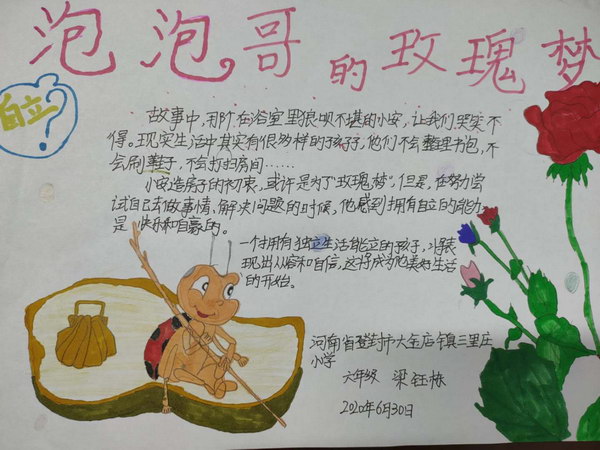 泡泡哥的玫瑰梦
自立?
故事中,那个在浴室里狼狈不堪的小安,让我们哭笑不
得。现实生活中其实有很多样的孩子,他们不会整理书包,不
会刷鞋子,不会打扫房间……
小安造房子的初衷,或许是为了“玫瑰梦”,但是,在努力尝
试自己去做事情、解决问题的时候,他感到拥有自立的能力
是快乐和自豪的。
一个拥有独立生活能立的孩子,将表
现出从容和自信,这将成为他美好生活
的开始。
河南省登封市大金店镇三里庄
小学
六年级 梁钰栋
2020年6月30日